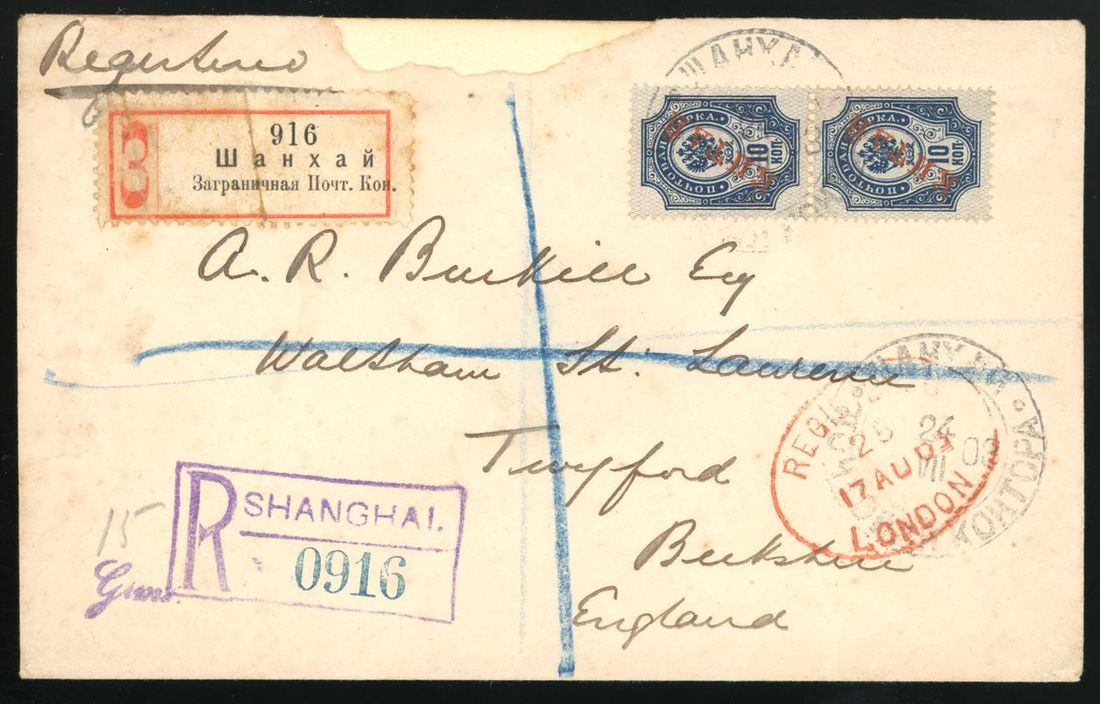 Registered
З
916
Шанхай
Заграничная Почт. Кон.
ШАНХА
ПОЧТОВАЯ МАРКА.
10 КОП.
КИТАЙ
ПОЧТОВАЯ МАРКА.
10 КОП.
КИТАЙ
A. R. Burkill Esq
Waltham St: Lawrence
Twyford
Berkshire
England
R SHANGHAI.
0916
15
Gms
REGIS
17 AU 03
LONDON
ШАНХАЙ
КОНТОРА
24
VII
03